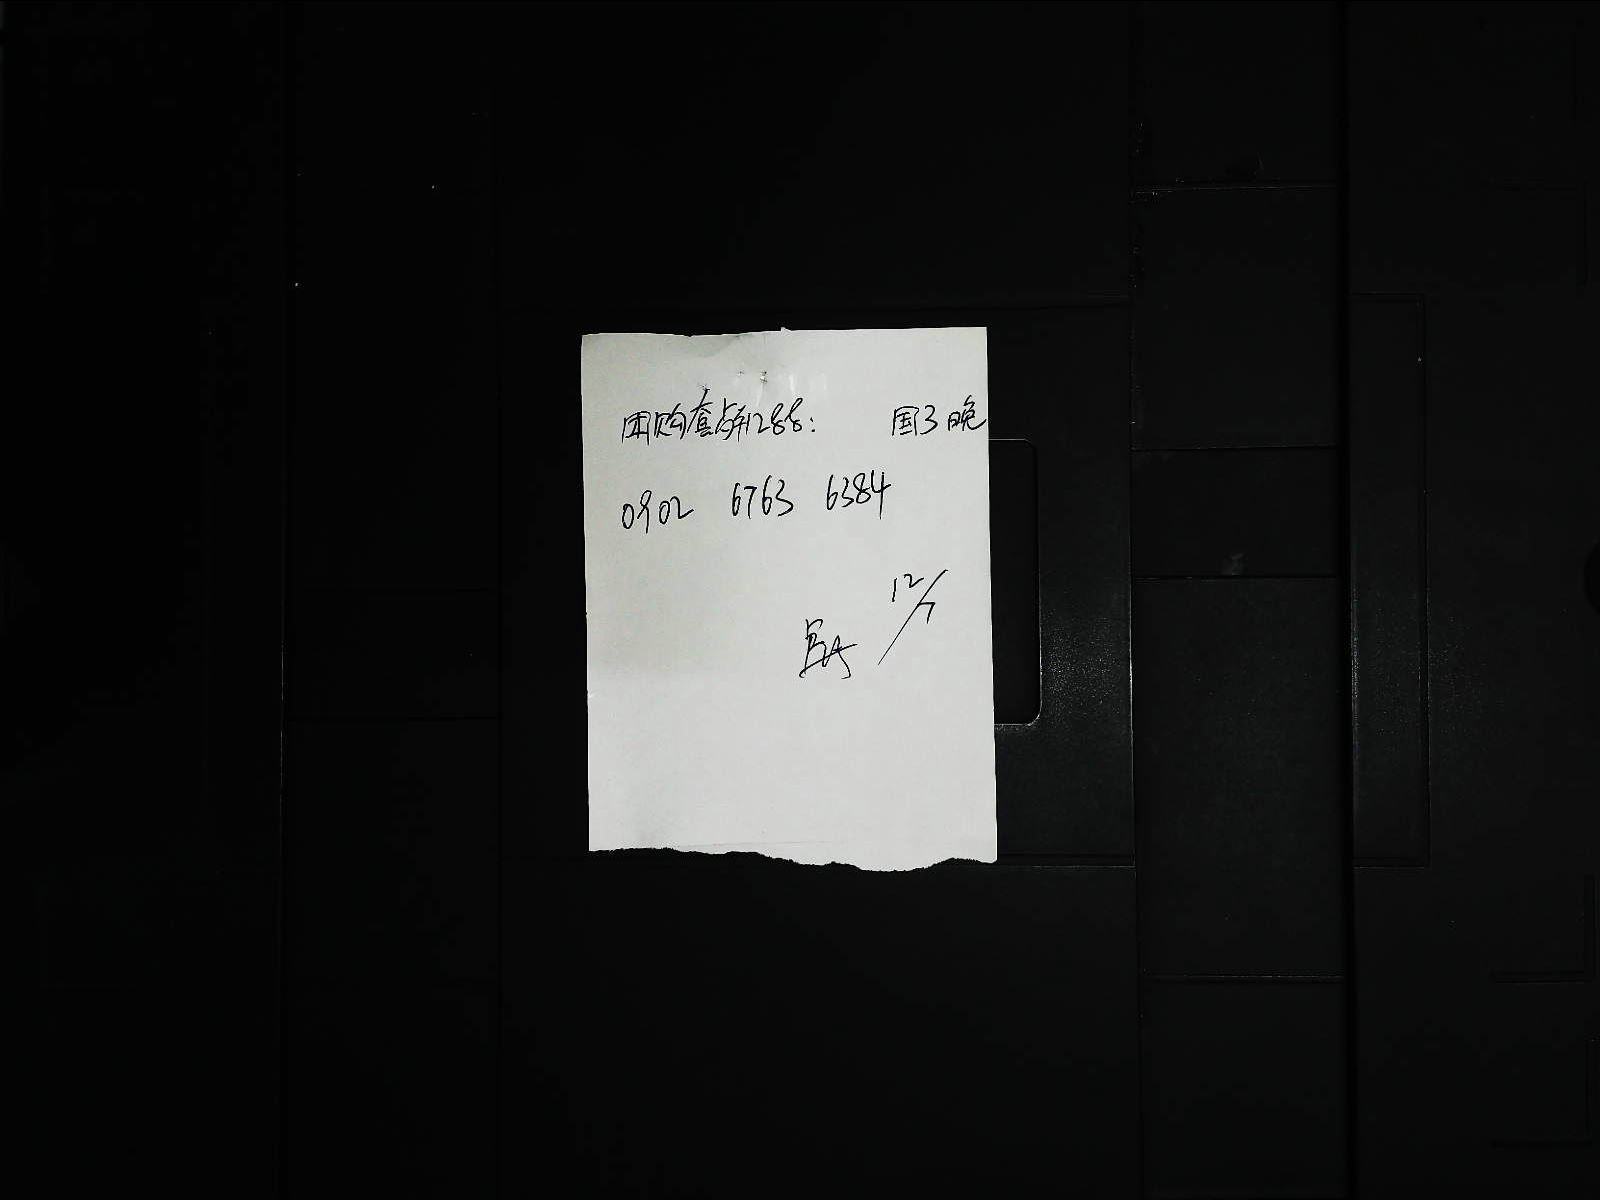 团购套餐1288: 国3晚
0902 6763 6384
12/7